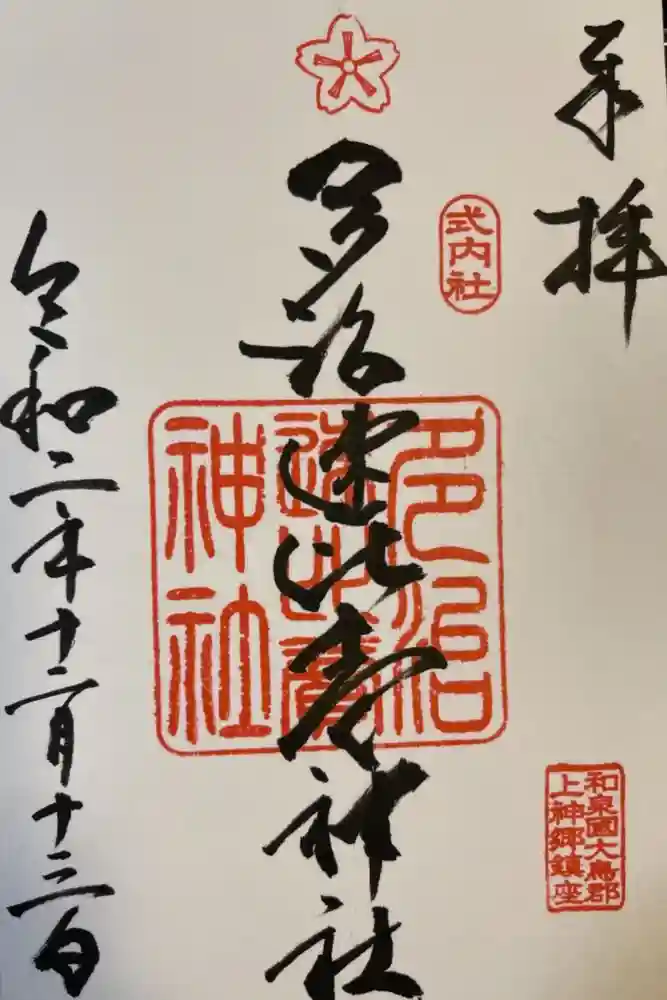 奉拝
式内社
和泉國大鳥郡
上神郷鎮座
多治速比売神社
多治
速比賣
神社
令和二年十二月十三日